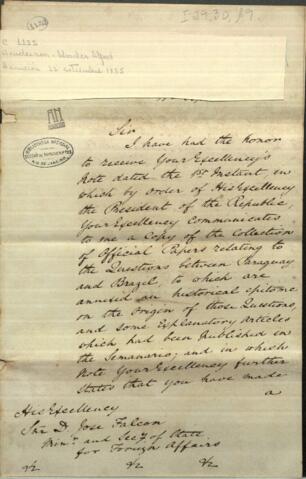 I-29,30,19.
Sir
I have had the honor
to receive Your Excellency's
Note dated the 1st Instant, in
which by order of His Excellency
the President of the Republic,
Your Excellency Communicates
to me a Copy of the Collection
of Official Papers relating to
the Questions between Paraguay
and Brazil, to which are
annexed an historical epitome
on the Origen of those Questions,
and some Explanatory Articles
which had been Published in
the Semanario; and in which
Note Your Excellency further
states that you have made
a
His Excellency
Snr D. Jose Falcon
Minr. and Secy. of State
for Foreign Affairs
BIBLIOTHECA NACIONAL
RIO DE JANEIRO